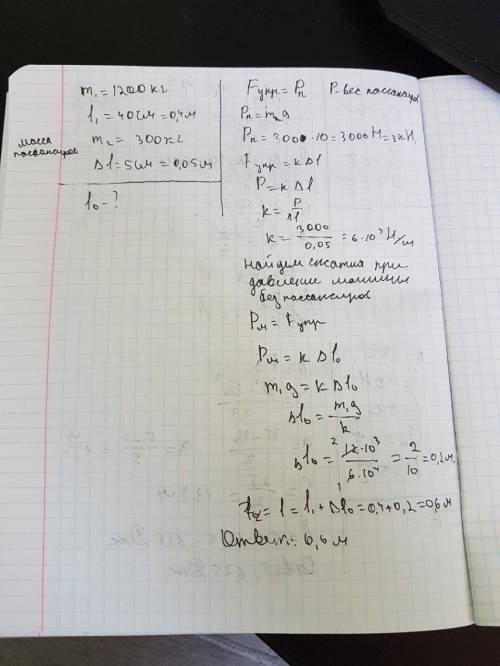 m₁ = 1200 кг
l₁ = 40 см = 0,4 м
масса пассажиров
m₂ = 300 кг
Δl = 5 см = 0,05 м
l₀ - ?
Fупр = Pп P - вес пассажиров
Pп = m₂g
Pп = 3000 · 10 = 3000 Н = 3 кН.
Fупр = kΔl
P = kΔl
k = P/Δl
k = 3000/0,05 = 6·10⁴ Н/м
найдем сжатия при
давлении машины
без пассажиров
Pм = Fупр
Pм = kΔl₀
m₁g = kΔl₀
Δl₀ = m₁g/k
Δl₀ = 12·10³/6·10⁴ = 2/10 = 0,2 м.
l = l₁ + Δl₀ = 0,4 + 0,2 = 0,6 м
Ответ: 0,6 м